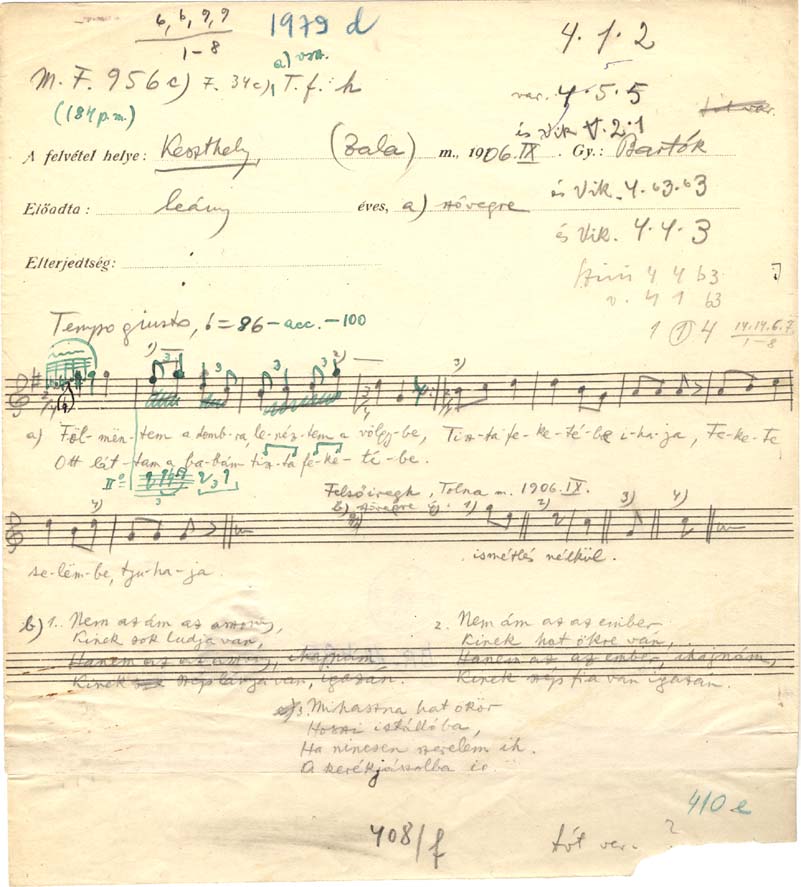 6, 6, 9, 9
1-8
1979 d
4. 1. 2
M. F. 956 c) F. 34 c), T. f. h
a)
(184 p.m.)
var. 4. 5. 5
tót var.
és Vik V. 2. 1
A felvétel helye: Keszthely, (Zala) m., 1906. IX. Gy.: Bartók
és Vik. 4. b3. b3
Előadta: leány éves, a) szövegre
és Vik. 4. 4. 3
Elterjedtség:
4 4 b3
v. 4 1 b3
1 1 4 14.14.6.7.
1-8
Tempo giusto, = 86 - acc. - 100
1) 3 3 3 3 2) 3)
a) Föl-mën-tem a domb-ra, le-néz-tem a völgy-be, Tisz-ta fe-ke-té-be i-ha-ja, Fe-ke-te
Ott lát-tam a ba-bám tisz-ta fe-ke-té-be.
II°
3 3
Felsőiregh, Tolna m. 1906. IX.
4)
b) szövegre így: 1) 2) 3) 4)
ismétlés nélkül.
se-lëm-be, tyu-ha-ja.
b) 1. Nem az ám az asszony,
Kinek sok ludja van,
Hanem az az asszony, ihajnám,
Kinek szép lánya van, igazán.
2. Nem ám az az ember
Kinek hat ökre van,
Hanem az az ember, ihajnám,
Kinek szép fia van igazán.
3. Mihaszna hat ökör
Hosszi istállóba,
Ha nincsen szerelem ih.
A kerekjászolba is.
410 e
408/f
tót var. ?